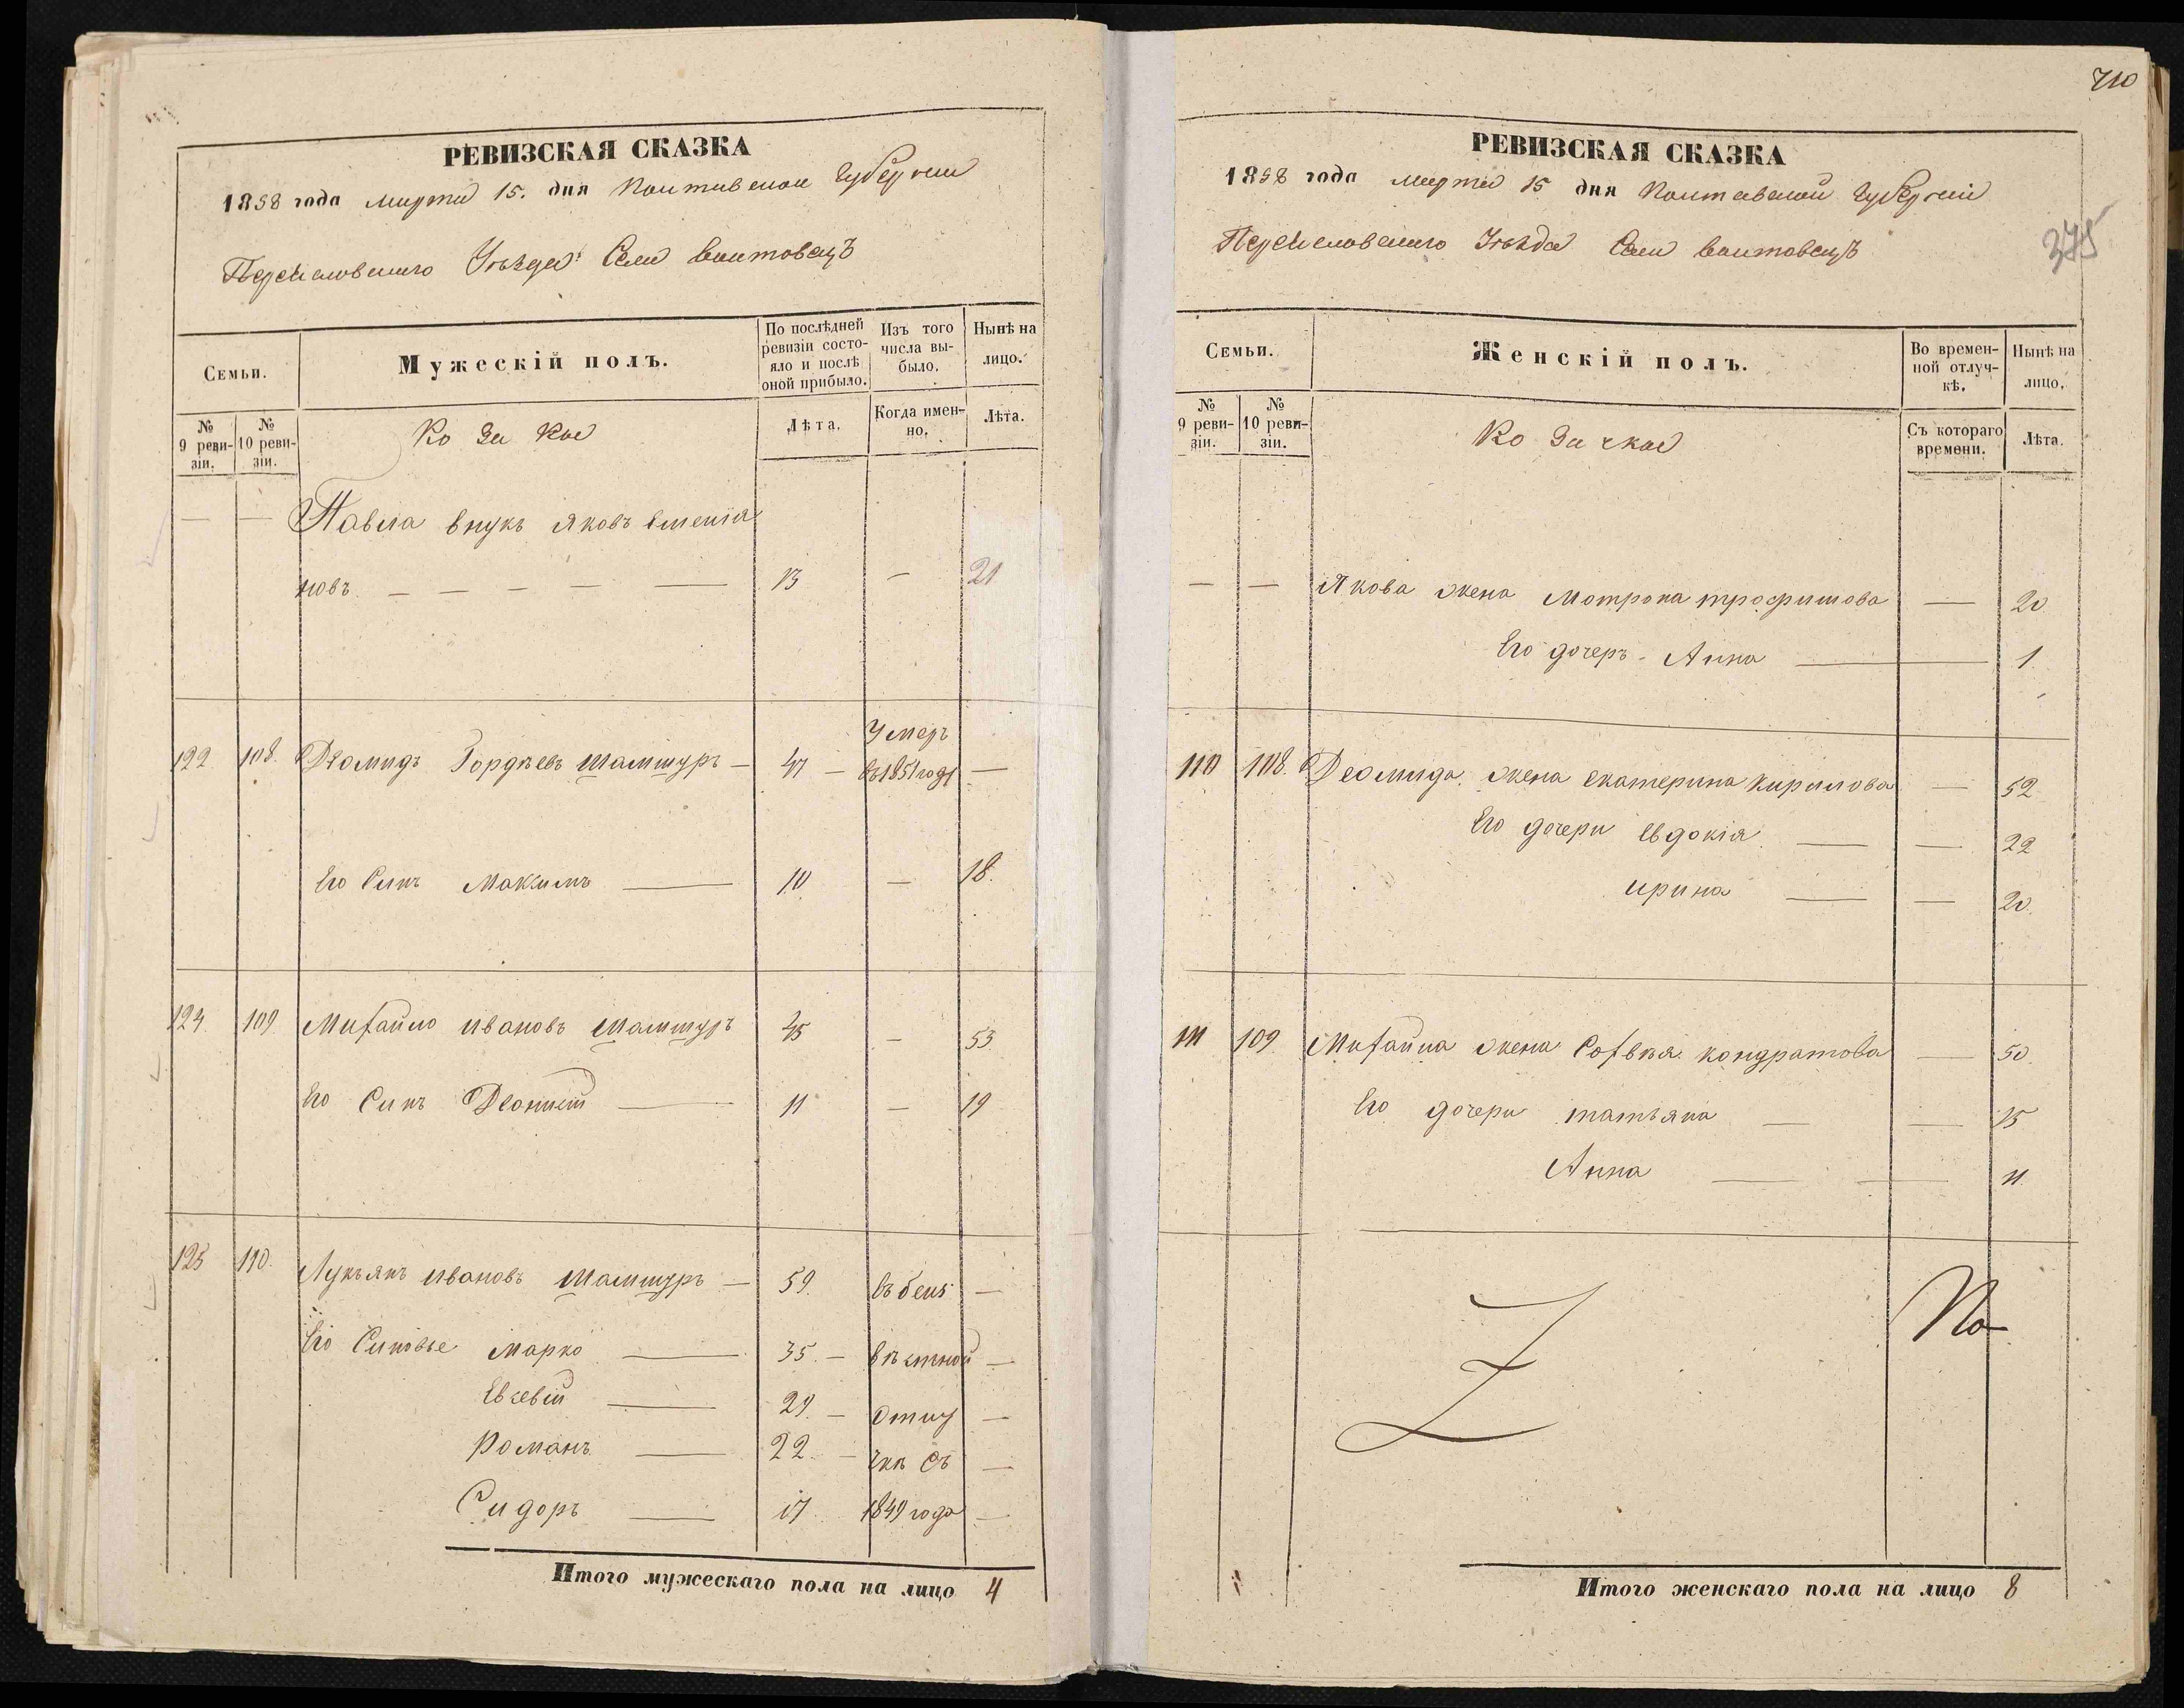 РЕВИЗСКАЯ СКАЗКА
1858 года марта 15. дня Полтавской Губернии
Переяславскаго Уѣзда Села Войтовецъ
Семьи.
Мужескій полъ.
По послѣдней ревизіи состояло и послѣ оной прибыло.
Изъ того числа выбыло.
Нынѣ на лицо.
№ 9 ревизіи.
№ 10 ревизіи.
Козаки
Лѣта.
Когда именно.
Лѣта.
— — Павла внукъ Яковъ
новъ — — — — — 13 — 21
122. 108. Деомидъ Гордѣевъ Шамшуръ — 47 — Умеръ въ 1851 году —
Его Синъ Максимъ — 10 — 18.
124. 109. Михайло Ивановъ Шамшуръ 45 — 53
Его Синъ Деонисій — 11 — 19
125 110. Лукьянъ Ивановъ Шамшуръ — 59. въ безъ —
Его Синовье Марко — 35. — вѣстной —
Евсевій — 29. — отлу —
Романъ — 22. — чкѣ съ —
Сидоръ — 17 1849 года —
Итого мужескаго пола на лицо 4
710
РЕВИЗСКАЯ СКАЗКА
1858 года марта 15 дня Полтавской Губерніи
Переяславскаго Уѣзда Села Войтовецъ
375
Семьи.
Женскій полъ.
Во временной отлучкѣ.
Нынѣ на лицо.
№ 9 ревизіи.
№ 10 ревизіи.
Козачки
Съ котораго времени.
Лѣта.
— — Якова жена Мотрона Трофимова — 20
Его дочеръ - Анна — 1.
110 108. Деомида жена Екатерина Кирилова — 52
Его дочери Евдокія — — 22
Ирина — — 20.
111 109. Михайла жена Софѣя Кондратова — 50.
Его дочери Татьяна — — 15
Анна — — 11.
Итого женскаго пола на лицо 8